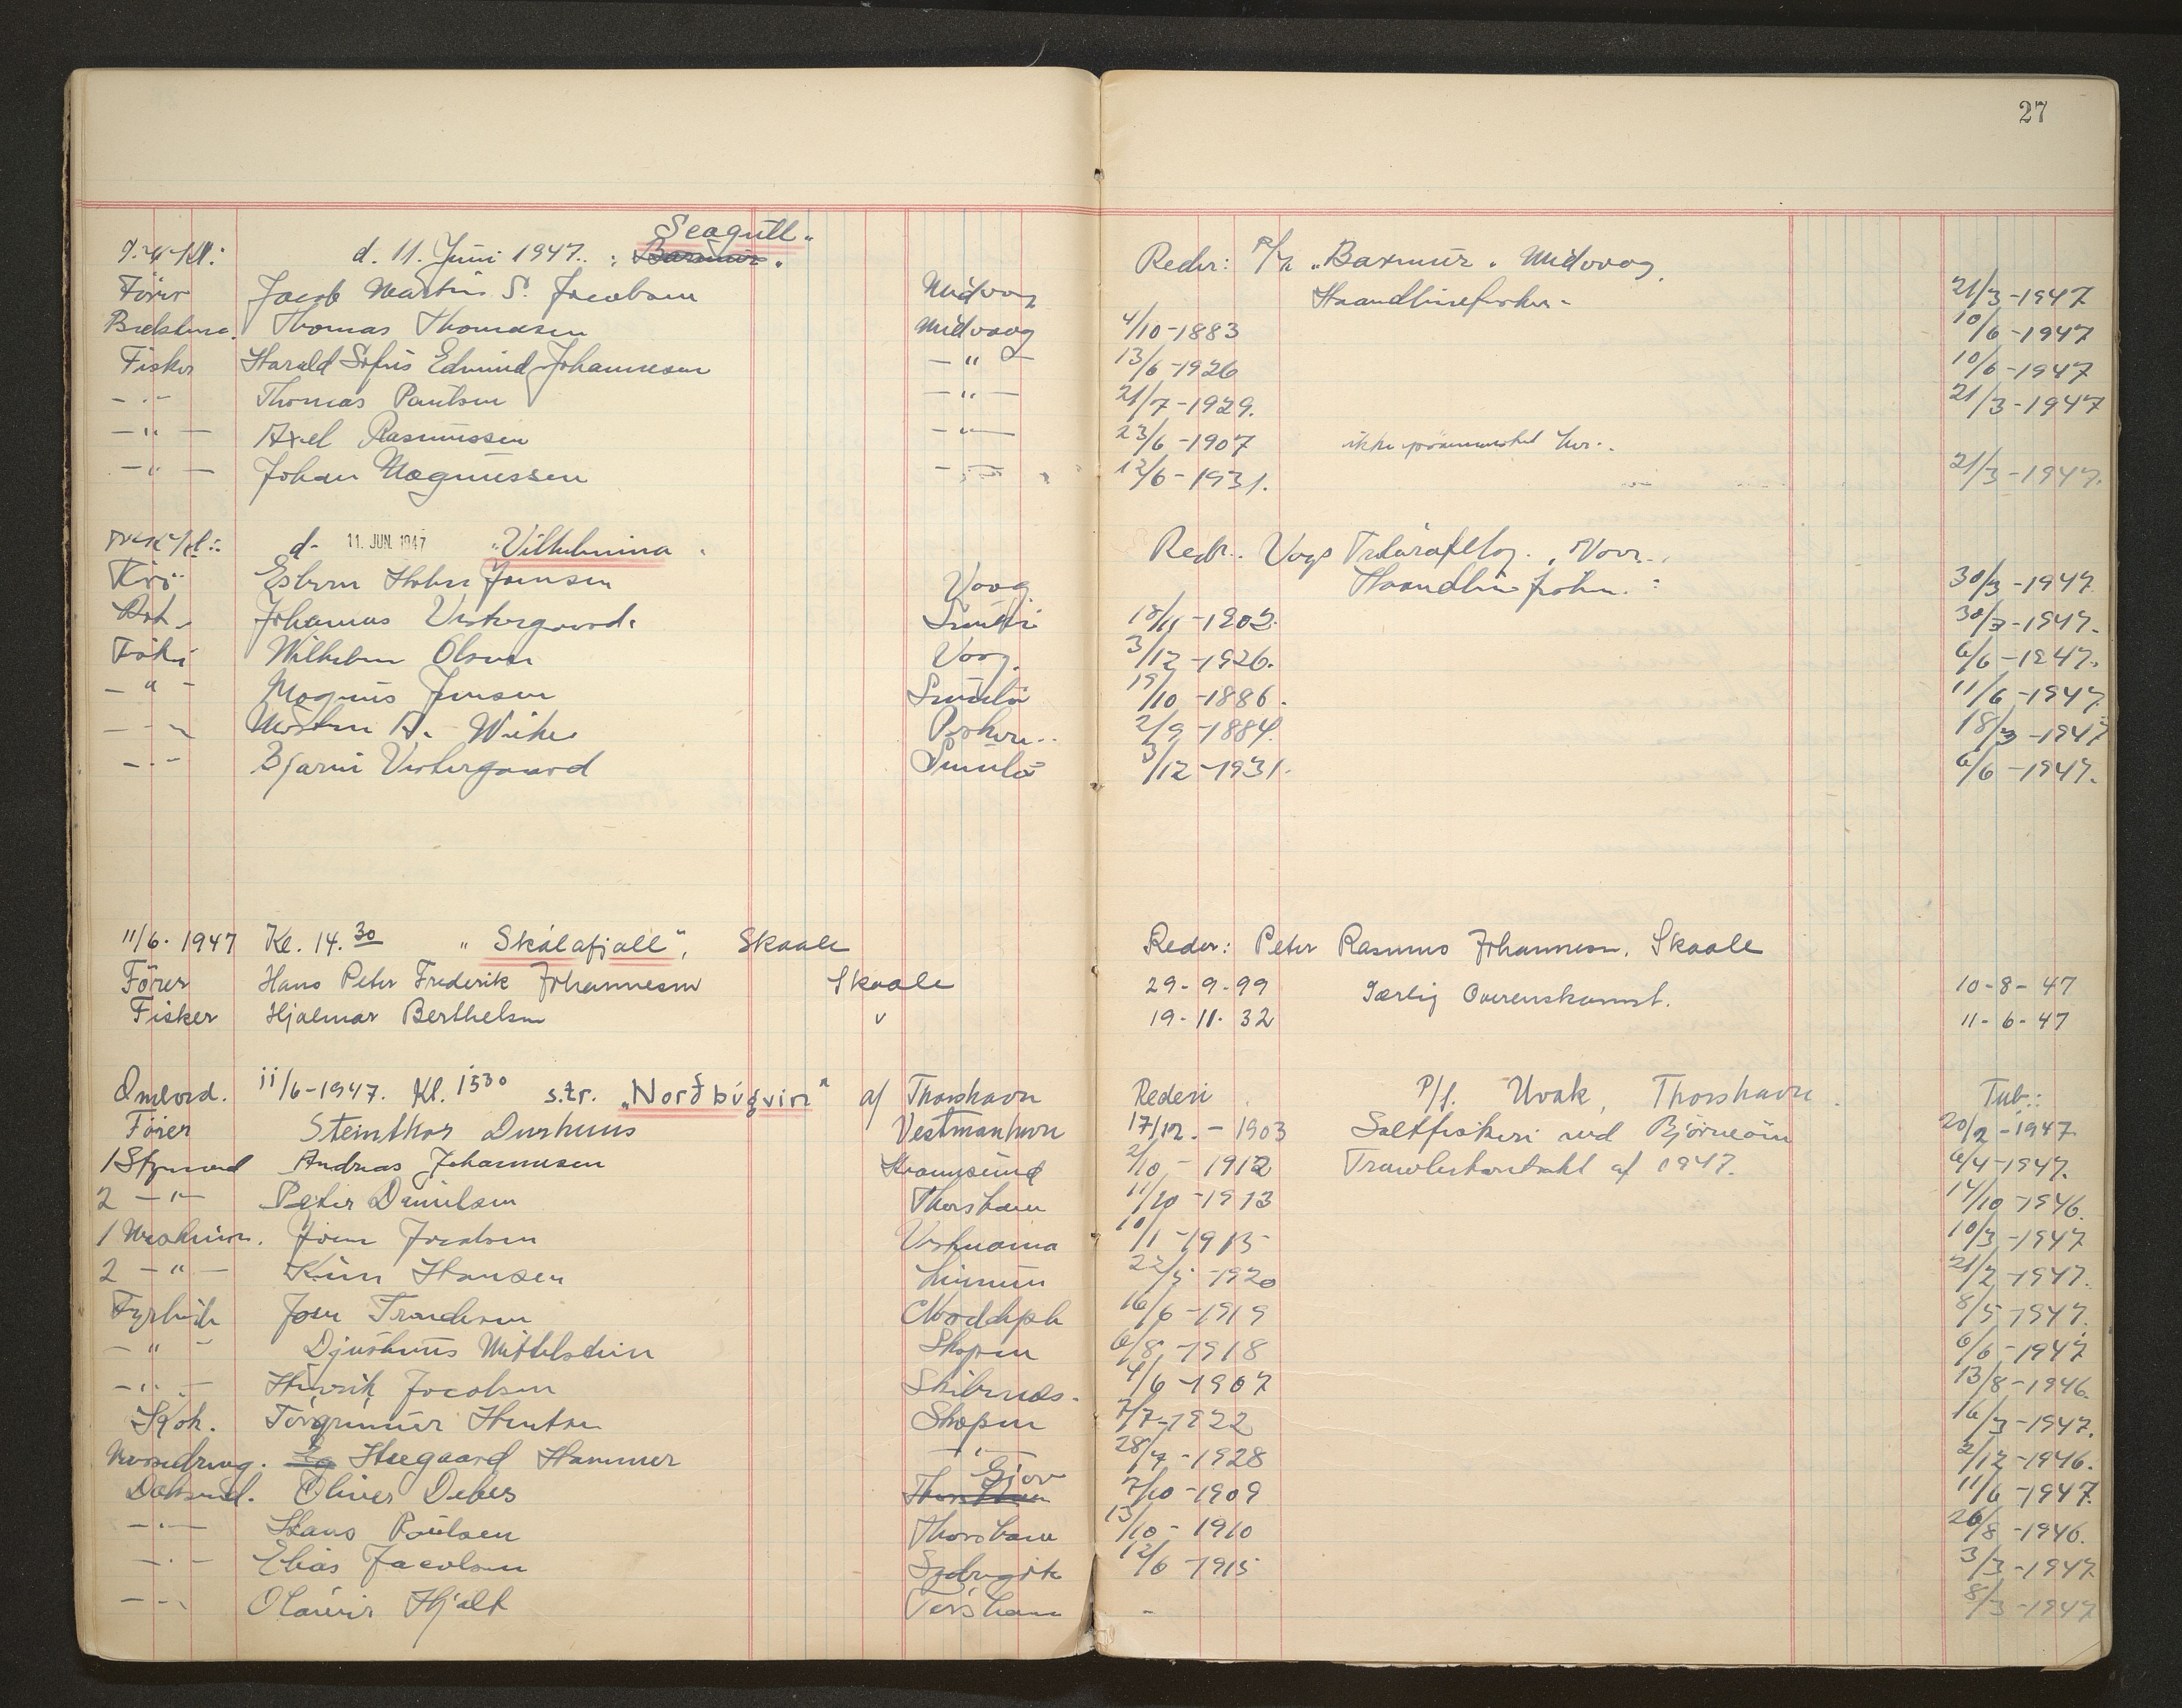 27
Seagull"
d. 11. Juni 1947. : Barmur. Reder: P/r "Barmur". Midvaag.
Förer Jacob Martin S. Jacobsen Midvaag Haandlinefiskeri 21/3-1947
Thomas Thomasen Midvaag 4/10-1883 10/6-1947
Fisker Harald Sofus Edmund Johannesen -"- 13/6-1926 10/6-1947
-"- Thomas Paulsen -"- 21/7-1929. 21/3-1947
-"- Axel Rasmussen -"- 23/6-1907 ikke her.
-"- Johan Magnussen -"- 12/6-1931. 21/3-1947.
d. 11. JUN. 1947 "Vilhelmina". Reder.
Esbern Jensen Vaag Haandlinefiskeri: 30/3-1947
Johannus Vestergaard. 18/11-1902. 30/3-1947.
Wilhelm Olsen Vaag. 3/12-1926. 6/6-1947.
-"- Magnus Jensen Sumbö 19/10-1886. 11/6-1947.
-"- Morten A. 2/9-1884. 18/3-1947
-"- Bjarni Vestergaard Sumbö 3/12-1931. 6/6-1947.
11/6. 1947 Kl. 14.30 "Skálafjall", Skaale Reder: Peter Rasmus Johannesen, Skaale
Förer Hans Peter Frederik Johannesen Skaale 29-9-99 Særlig Overenskomst. 10-8-47
Fisker Hjalmar Berthelsen " 19-11-32 11-6-47
Ombord. 11/6-1947. Kl. 1530 s.tr. "Norðbúgvin" af Thorshavn Rederi P/f. Uvak, Thorshavn. Tilt.:
Förer Steinthor Durhuus Vestmanhavn 17/12.-1903 Saltfiskeri ved Björneöen 20/2-1947
1 Styrmand Andreas Johannesen 2/10-1912 Trawlerkontrakt af 1947. 6/4-1947.
2 -"- Peter Danielsen Thorshavn 11/10-1913 14/10-1946.
1 Maskinm. Joen Jacobsen Vestmanna 10/1-1915 10/3-1947
2 -"- Hansen 22/5-1920 21/2-1947.
Fyrböder Joen Trondesen 16/6-1919 8/5-1947.
-"- Djurhuus Mittelstein Skopun 6/8-1918 6/6-1947
-"- Hinrik Jacobsen Skibenæs. 4/6-1907 13/8-1946.
Kok. Torgrimur Hentze Skopun 7/7-1922 16/3-1947.
Heegaard Hammer -"- 28/7-1928 2/12-1946.
Gjov
Oliver Debes Thorshavn 7/10-1909 11/6-1947.
-"- Hans Poulsen Thorshavn 13/10-1910 26/8-1946.
-"- Elias Jacobsen 12/6-1915 3/3-1947
-"- Olavur Hjalt Tórshavn - 8/3-1947